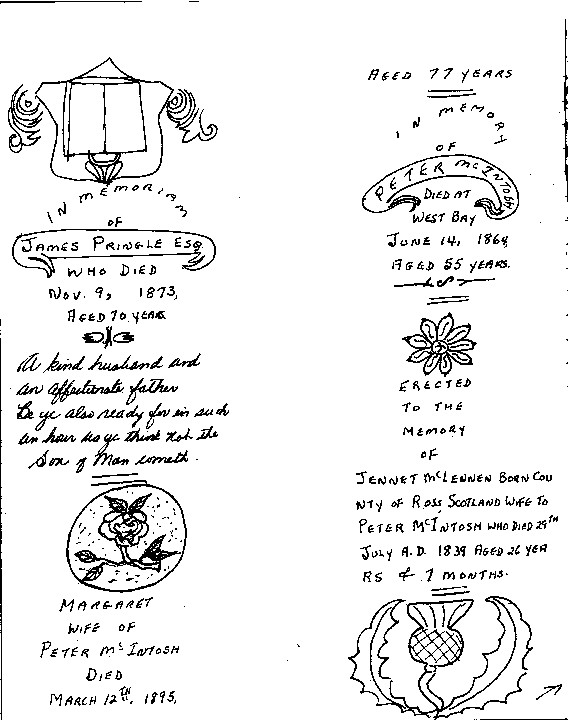 IN MEMORIAM
OF
JAMES PRINGLE ESQ
WHO DIED
NOV. 9, 1873,
AGED 70 YEARS
A kind husband and
an affectunate father
Be ye also ready for in such
an hour as ye think not the
Son of Man cometh.
MARGARET
WIFE OF
PETER McINTOSH
DIED
MARCH 12TH, 1895,
AGED 77 YEARS
IN MEMORY
OF
PETER McINTOSH
DIED AT
WEST BAY
JUNE 14, 1864,
AGED 55 YEARS.
ERECTED
TO THE
MEMORY
OF
JENNET McLENNEN BORN COU
NTY OF ROSS SCOTLAND WIFE TO
PETER McINTOSH WHO DIED 29TH
JULY A.D. 1839 AGED 26 YEA
RS & 7 MONTHS.